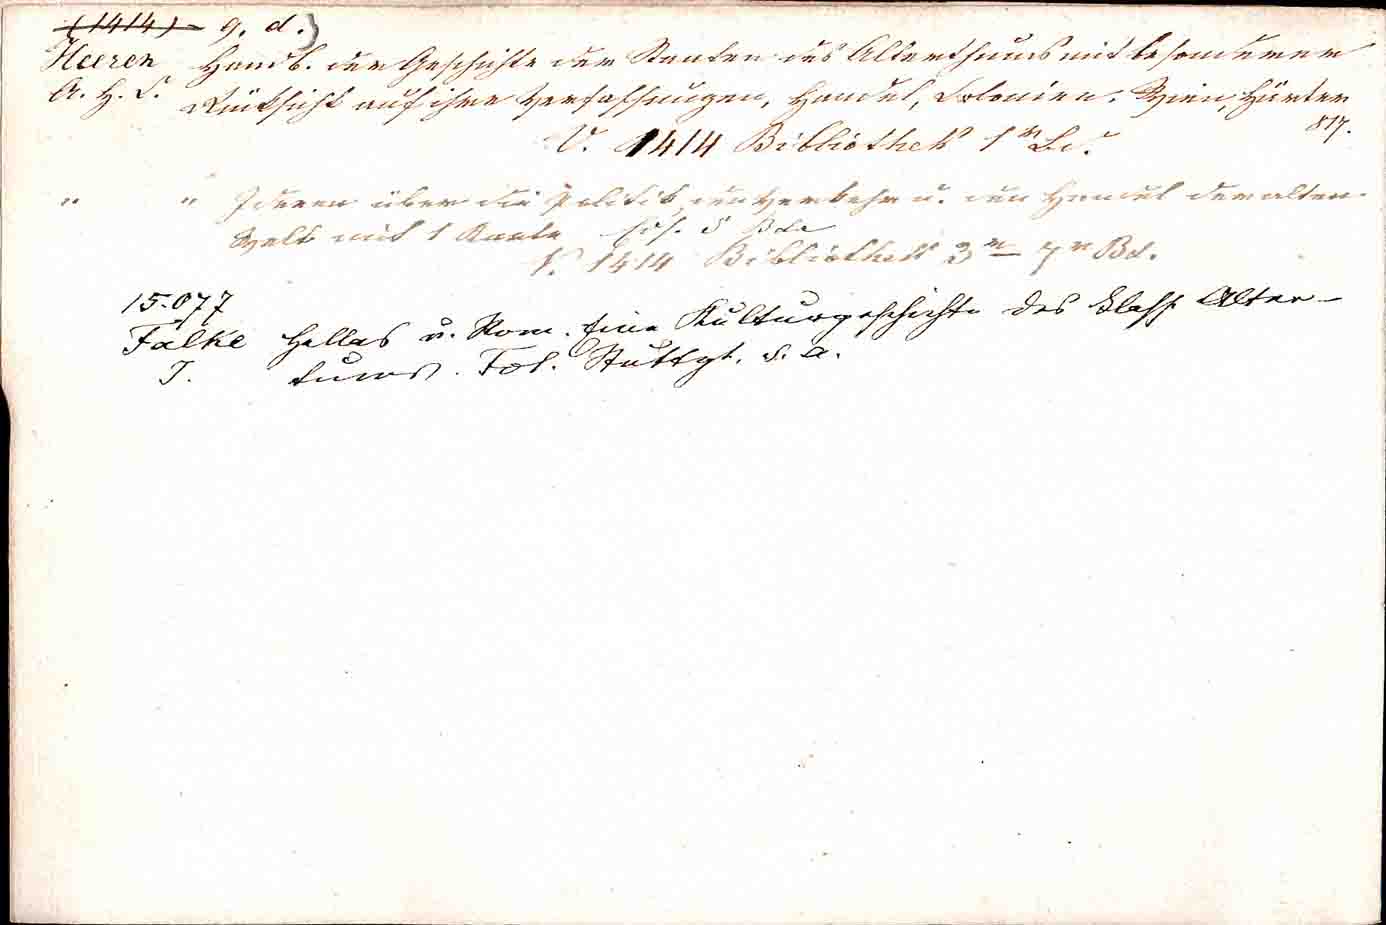 (1414) g. d.
Heeren Handb. der Geschichte der Staaten des Alterthums mit besonderer
A. H. L. Rücksicht auf ihre Verfassungen, Handel, Colonien. Wien, Härter
817.
V. 1414 Bibliothek 1r Bd.
" " Ideen über die Politik, den Verkehr u. den Handel der alten
Welt mit 1 Karte 5 Bde
V. 1414 Bibliothek 3r – 7r Bd.
15.077
Falke Hellas u. Rom. Eine Kulturgeschichte des klass. Alter-
J. tums. Fol. Stuttgt. s. a.